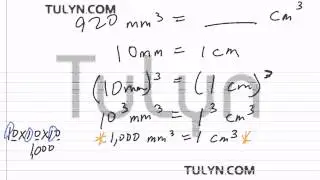 TULYN.COM
920 mm³ = ____ cm³
10mm = 1cm
(10mm)³ = (1cm)³
10³ mm³ = 1³ cm³
10×10×10
1,000
*1,000 mm³ = 1 cm³*
Tulyn
TULYN.COM